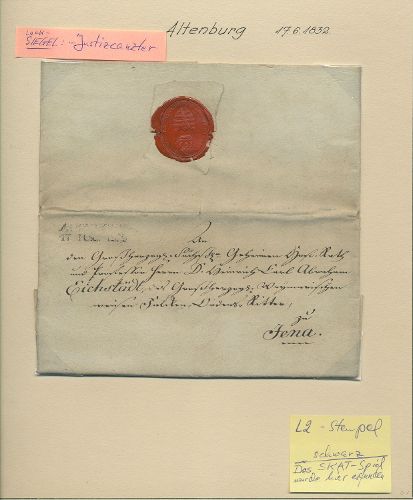 Lack-
SIEGEL: "Justizcanzler
Altenburg 17.6.1832
An
den Großherzogl. Sächs. Geheimen Hof-Rath
und Professor Herrn D. Heinrich Carl Abraham
Eichstädt, des Großherzogl. Weymarischen
weißen Falken-Ordens Ritter,
zu
Jena.
L2 - Stempel
schwarz
Das SKAT-Spiel
wurde hier erfunden